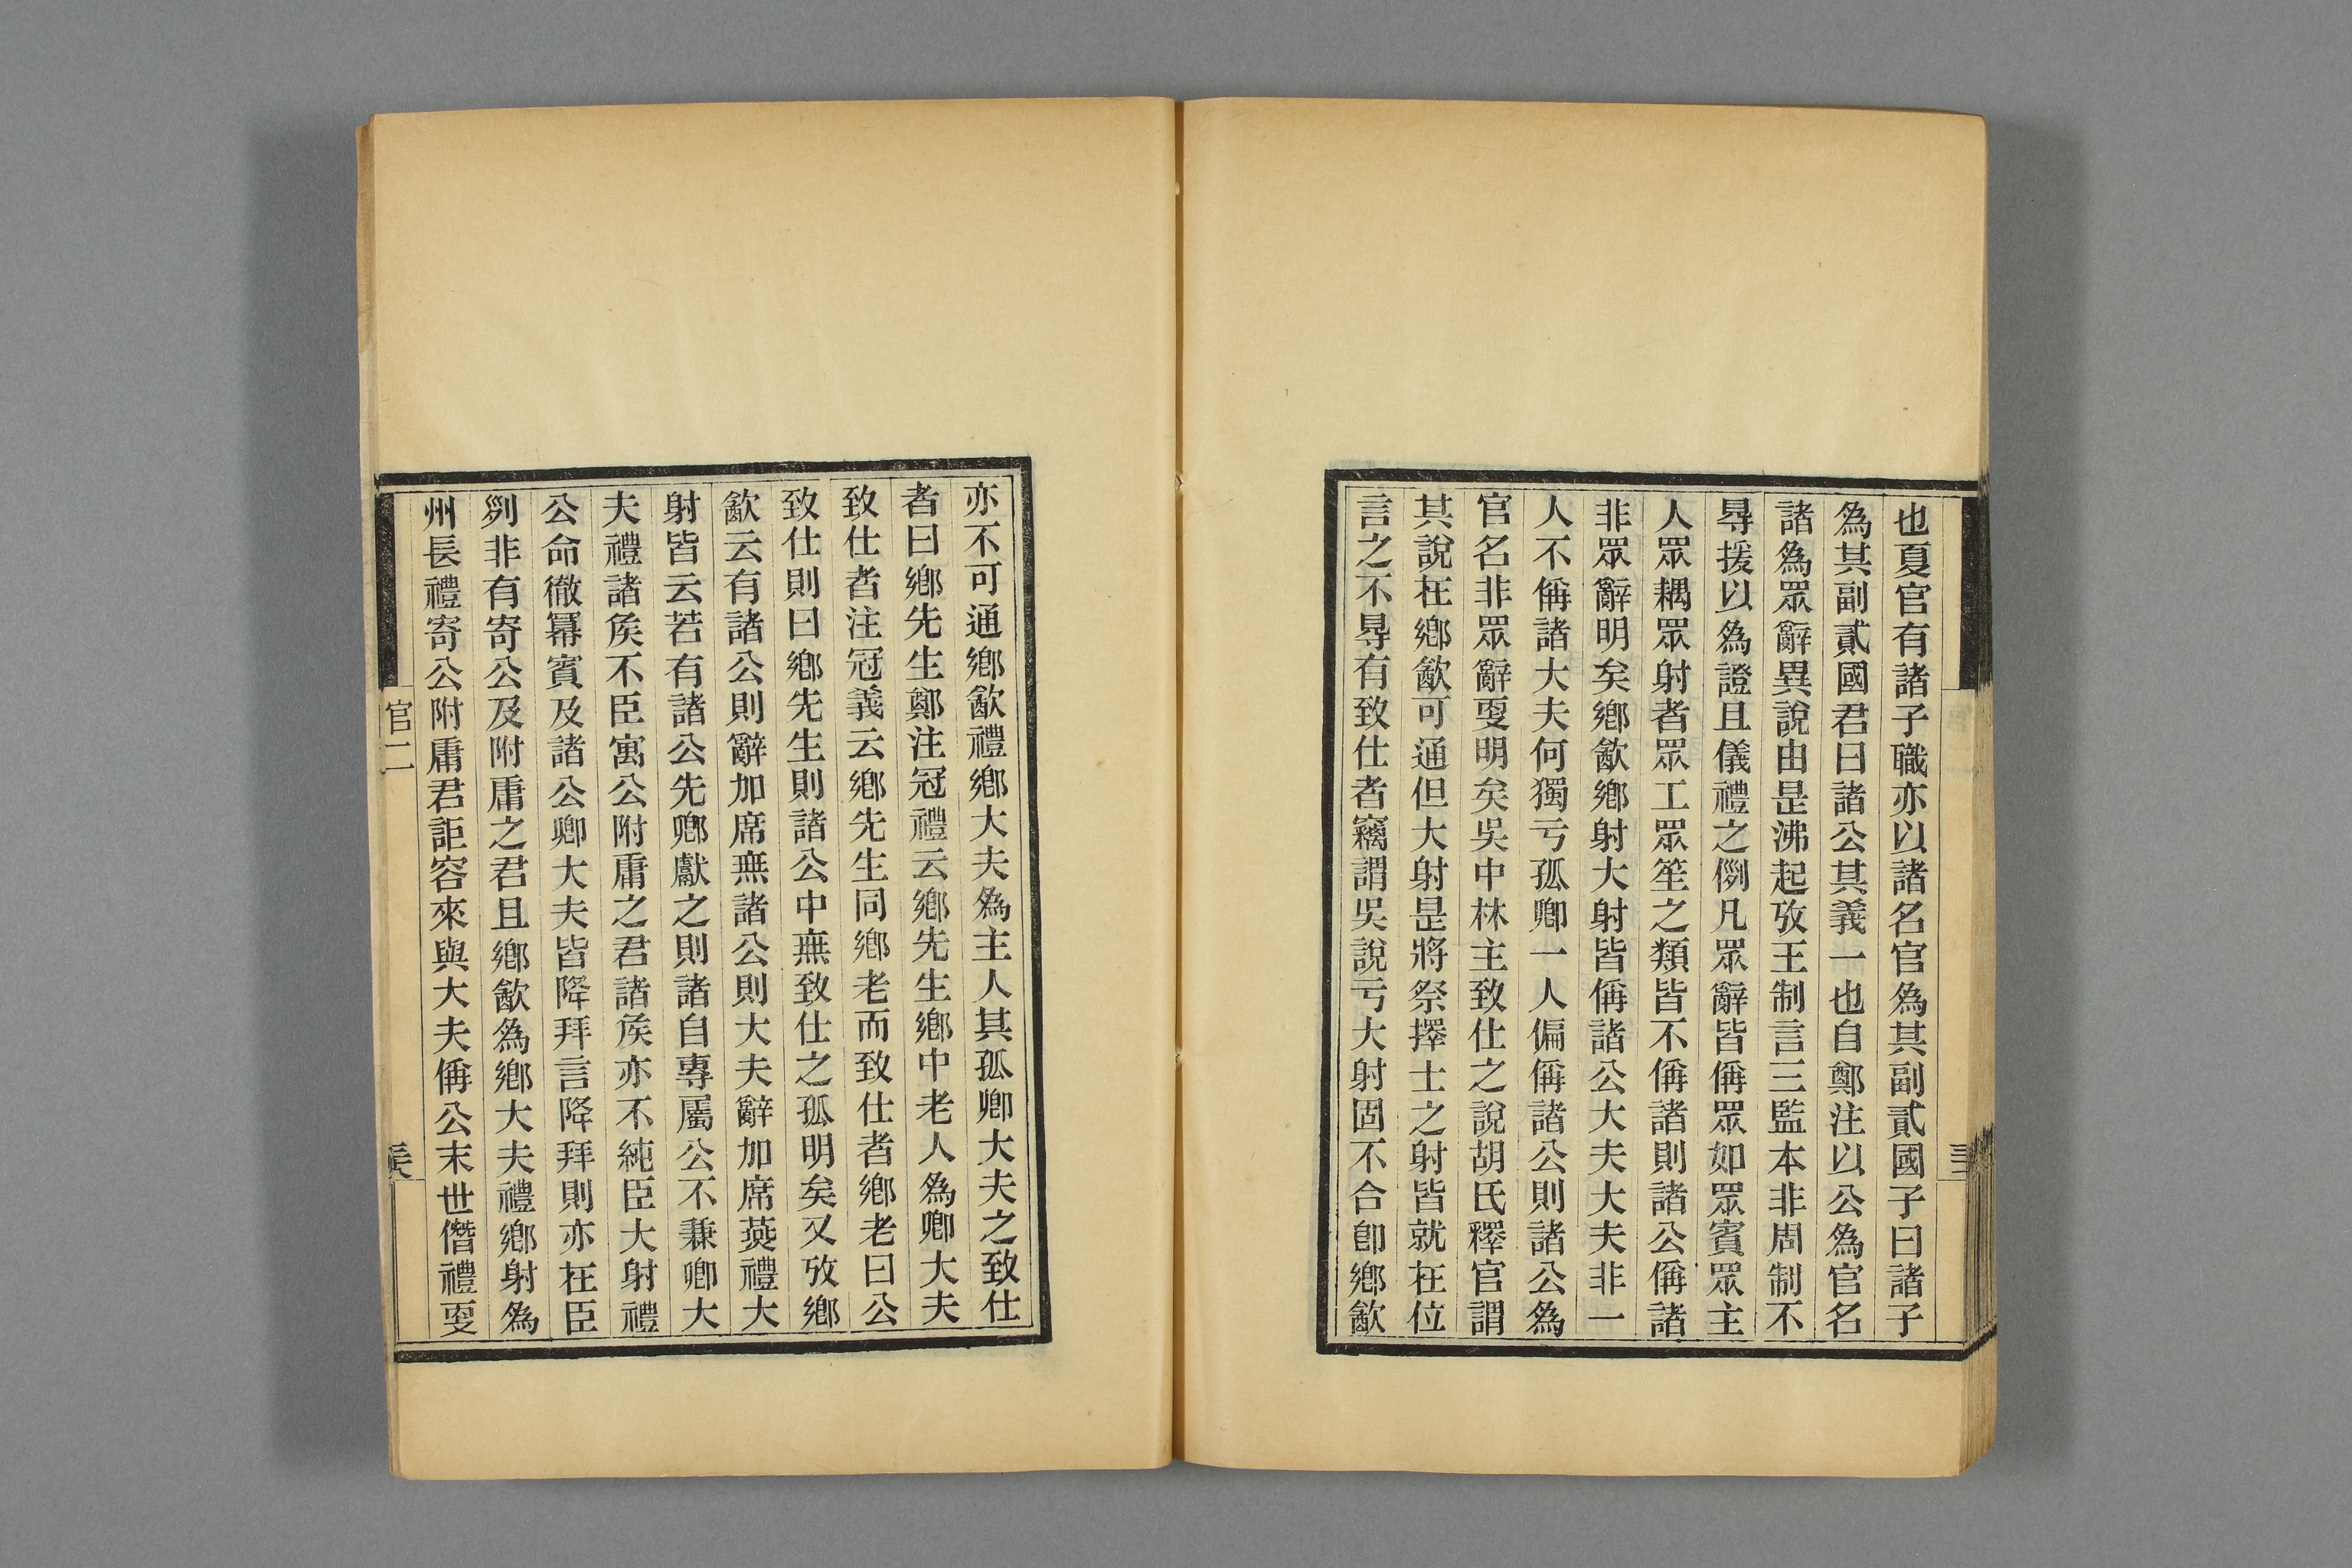 也夏官有諸子職亦以諸名官爲其副貳國子曰諸子
爲其副貳國君曰諸公其義一也自鄭注以公爲官名
諸爲眾辭異說由是沸起攷王制言三監本非周制不
㝵援以爲證且儀禮之例凡眾辭皆偁眾如眾賓眾主
人眾耦眾射者眾工眾笙之類皆不偁諸則諸公偁諸
非眾辭明矣鄉歙鄉射大射皆偁諸公大夫大夫非一
人不偁諸大夫何獨亏孤卿一人偏偁諸公則諸公爲
官名非眾辭叓明矣吳中林主致仕之說胡氏釋官謂
其說在鄉歙可通但大射是將祭擇士之射皆就在位
言之不㝵有致仕者竊謂吳說亏大射固不合卽鄉歙
亦不可通鄉歙禮鄉大夫爲主人其孤卿大夫之致仕
者曰鄉先生鄭注冠禮云鄉先生鄉中老人爲卿大夫
致仕者注冠義云鄉先生同鄉老而致仕者鄉老曰公
致仕則曰鄉先生則諸公中無致仕之孤明矣又攷鄉
歙云有諸公則辭加席無諸公則大夫辭加席燕禮大
射皆云若有諸公先卿獻之則諸自專屬公不兼卿大
夫禮諸矦不臣寓公附庸之君諸矦亦不純臣大射禮
公命徹冪賓及諸公卿大夫皆降拜言降拜則亦在臣
列非有寄公及附庸之君且鄉歙爲鄉大夫禮鄉射爲
州長禮寄公附庸君詎容來與大夫偁公末世僭禮叓
官二